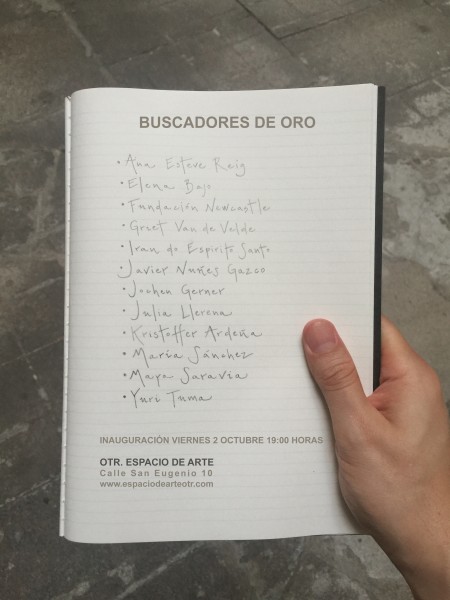 BUSCADORES DE ORO
• Ana Esteve Reig
• Elena Bajo
• Fundación Newcastle
• Greet Van de Velde
• Iran do Espirito Santo
• Javier Nuñes Gazco
• Jochen Gerner
• Julia Llerena
• Kristoffer Ardeña
• María Sánchez
• Maya Saravia
• Yuri Tuma
INAUGURACIÓN VIERNES 2 OCTUBRE 19:00 HORAS
OTR. ESPACIO DE ARTE
Calle San Eugenio 10
www.espaciodearteotr.com